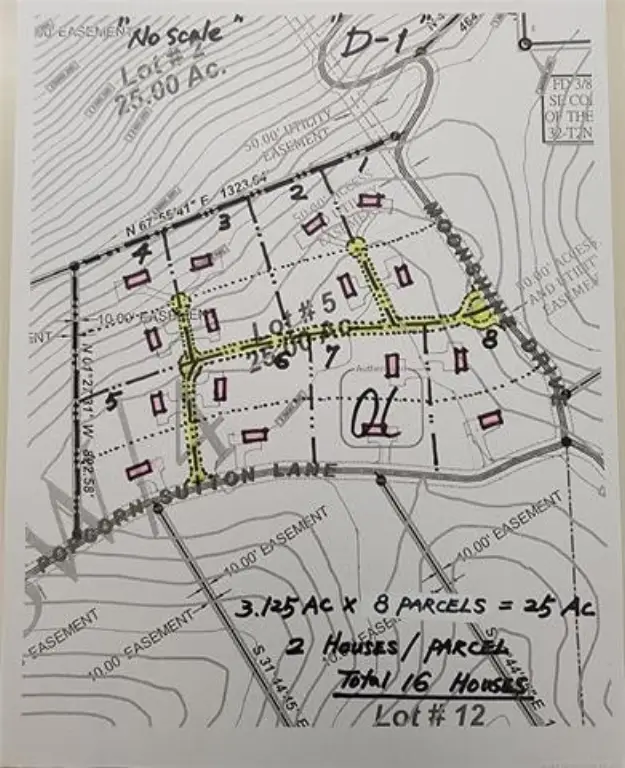 "No Scale"
"D-1"
464
00' EASEMENT
Lot # 4
25.00 Ac.
FD 3/8
SE CO
OF THE
32-T2N
50.00' UTILITY
EASEMENT
N 67°55'41" E 1323.64'
1
2
3
4
50.00' ACCESS
UTILITY
EASEMENT
MOONSHINE DRIVE
50.00' ACCESS
AND UTILITY
EASEMENT
10.00' EASEMENT
Lot # 5
25.00 AC
6
7
8
5
N 01°27'31" W 892.58'
OL
POPCORN SUTTON LANE
10.00' EASEMENT
10.00' EASEMENT
3.125 AC X 8 PARCELS = 25 AC
EASEMENT
10.00' EASEMENT
10.00' EASE
2 HOUSES / PARCEL
S 31°44'45" E
Total 16 HOUSES
Lot # 12